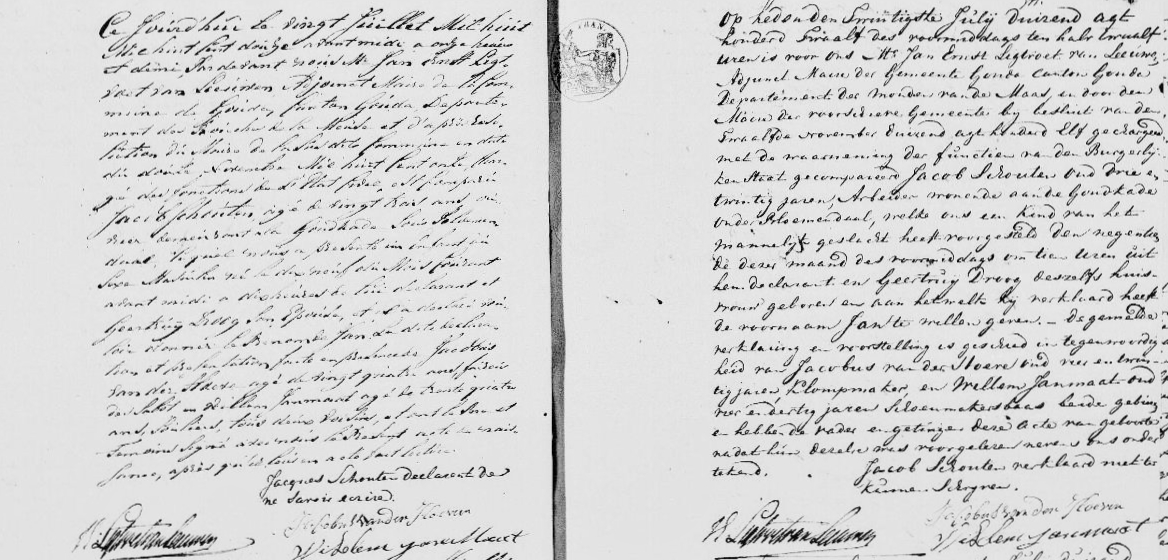 Ce Jourd'hui le vingt Juillet Mil huit
cent douze avant midi a onze heures
et demi Pardevant nous Mr Jan Ernst Ligt
voet van Leeuwen Adjoint Maire de la Com-
mune de Gouda, Canton Gouda Departe-
ment des Bouches de la Meuse et d'après
du Maire de la susdite Commune en date
du douze Novembre Mil huit cent onze
des fonctions de l'Etat Civil, est comparu
Jacob Schouten, agé de vingt trois ans, ou-
vrier demeurant a la Goudkade sous Bloemen-
daal, lequel nous a presenté un enfant du
Sexe Masculin né le dix neuf du Mois courant
avant midi a dix heures de lui declarant et
Geertruy Droog son Epouse, et
donner le Prenom de Jan
et presentation faite en presence de Jacobus
van der Hoeve agé de vingt quatre ans, faiseur
de Sabots en Willem Janmaat agé de trente quatre
ans, tous deux et ont le Pere et
Temoins signé avec nous le Present acte de nais-
sance, après qu'il leur en a été fait lecture
Jacques Schouten declarent de
ne savoir ecrire.
Jacobus van den Hoeven
Willem Janmaat
Op heden den Twintigste Julij Duizend agt
honderd Twaalf des voormiddags ten half twaalf
uren is voor ons Mr Jan Ernst Ligtvoet van Leeuwen
Adjunct Maire der Gemeente Gouda Canton Gouda
Departement der Monden van de Maas, en door den
Maire der voorschreve Gemeente by besluit van den
Twaalfde November duizend agt honderd Elf gechargeerd
met de waarneming der functien van den Burgerly-
ken Staat gecompareerd Jacob Schouten oud drie en
twintig jaren, Arbeider wonende aan de Goudkade
onder Bloemendaal, welke ons een Kind van het
mannelijk geslacht heeft voorgesteld den negentien
de dezer maand des voormiddags om tien uren uit
hem declarant en Geertruij Droog deszelfs huis-
vrouw geboren en aan hetwelk hij verklaard heeft
de voornaam Jan te willen geven. – de gemelde
verklaring en voorstelling is geschied in tegenwoordig
heid van Jacobus van der Hoeve oud vier en twin-
tig jaren, Klompmaker, en Willem Janmaat oud
vier en dertig jaren Schoenmakersbaas beide
en hebben de vader en getuigen deze acte van geboorte
nadat hun dezelve was voorgelezen nevens ons onder
tekend.
Jacob Schouten verklaard niet te
kunnen Schryven.
Jacobus van den Hoeven
Willem Janmaat